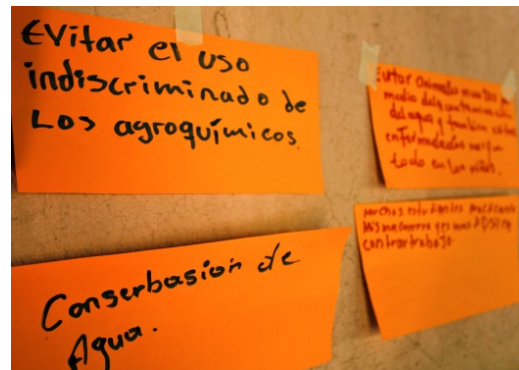 Evitar el uso
indiscriminado de
Los agroquímicos
Conserbasión de
Agua.
Evitar Animales muertos
medio del contaminación
del agua y también
enfermedades mas que
todo en los niños.
muchos estudiantes
contrar trabajo